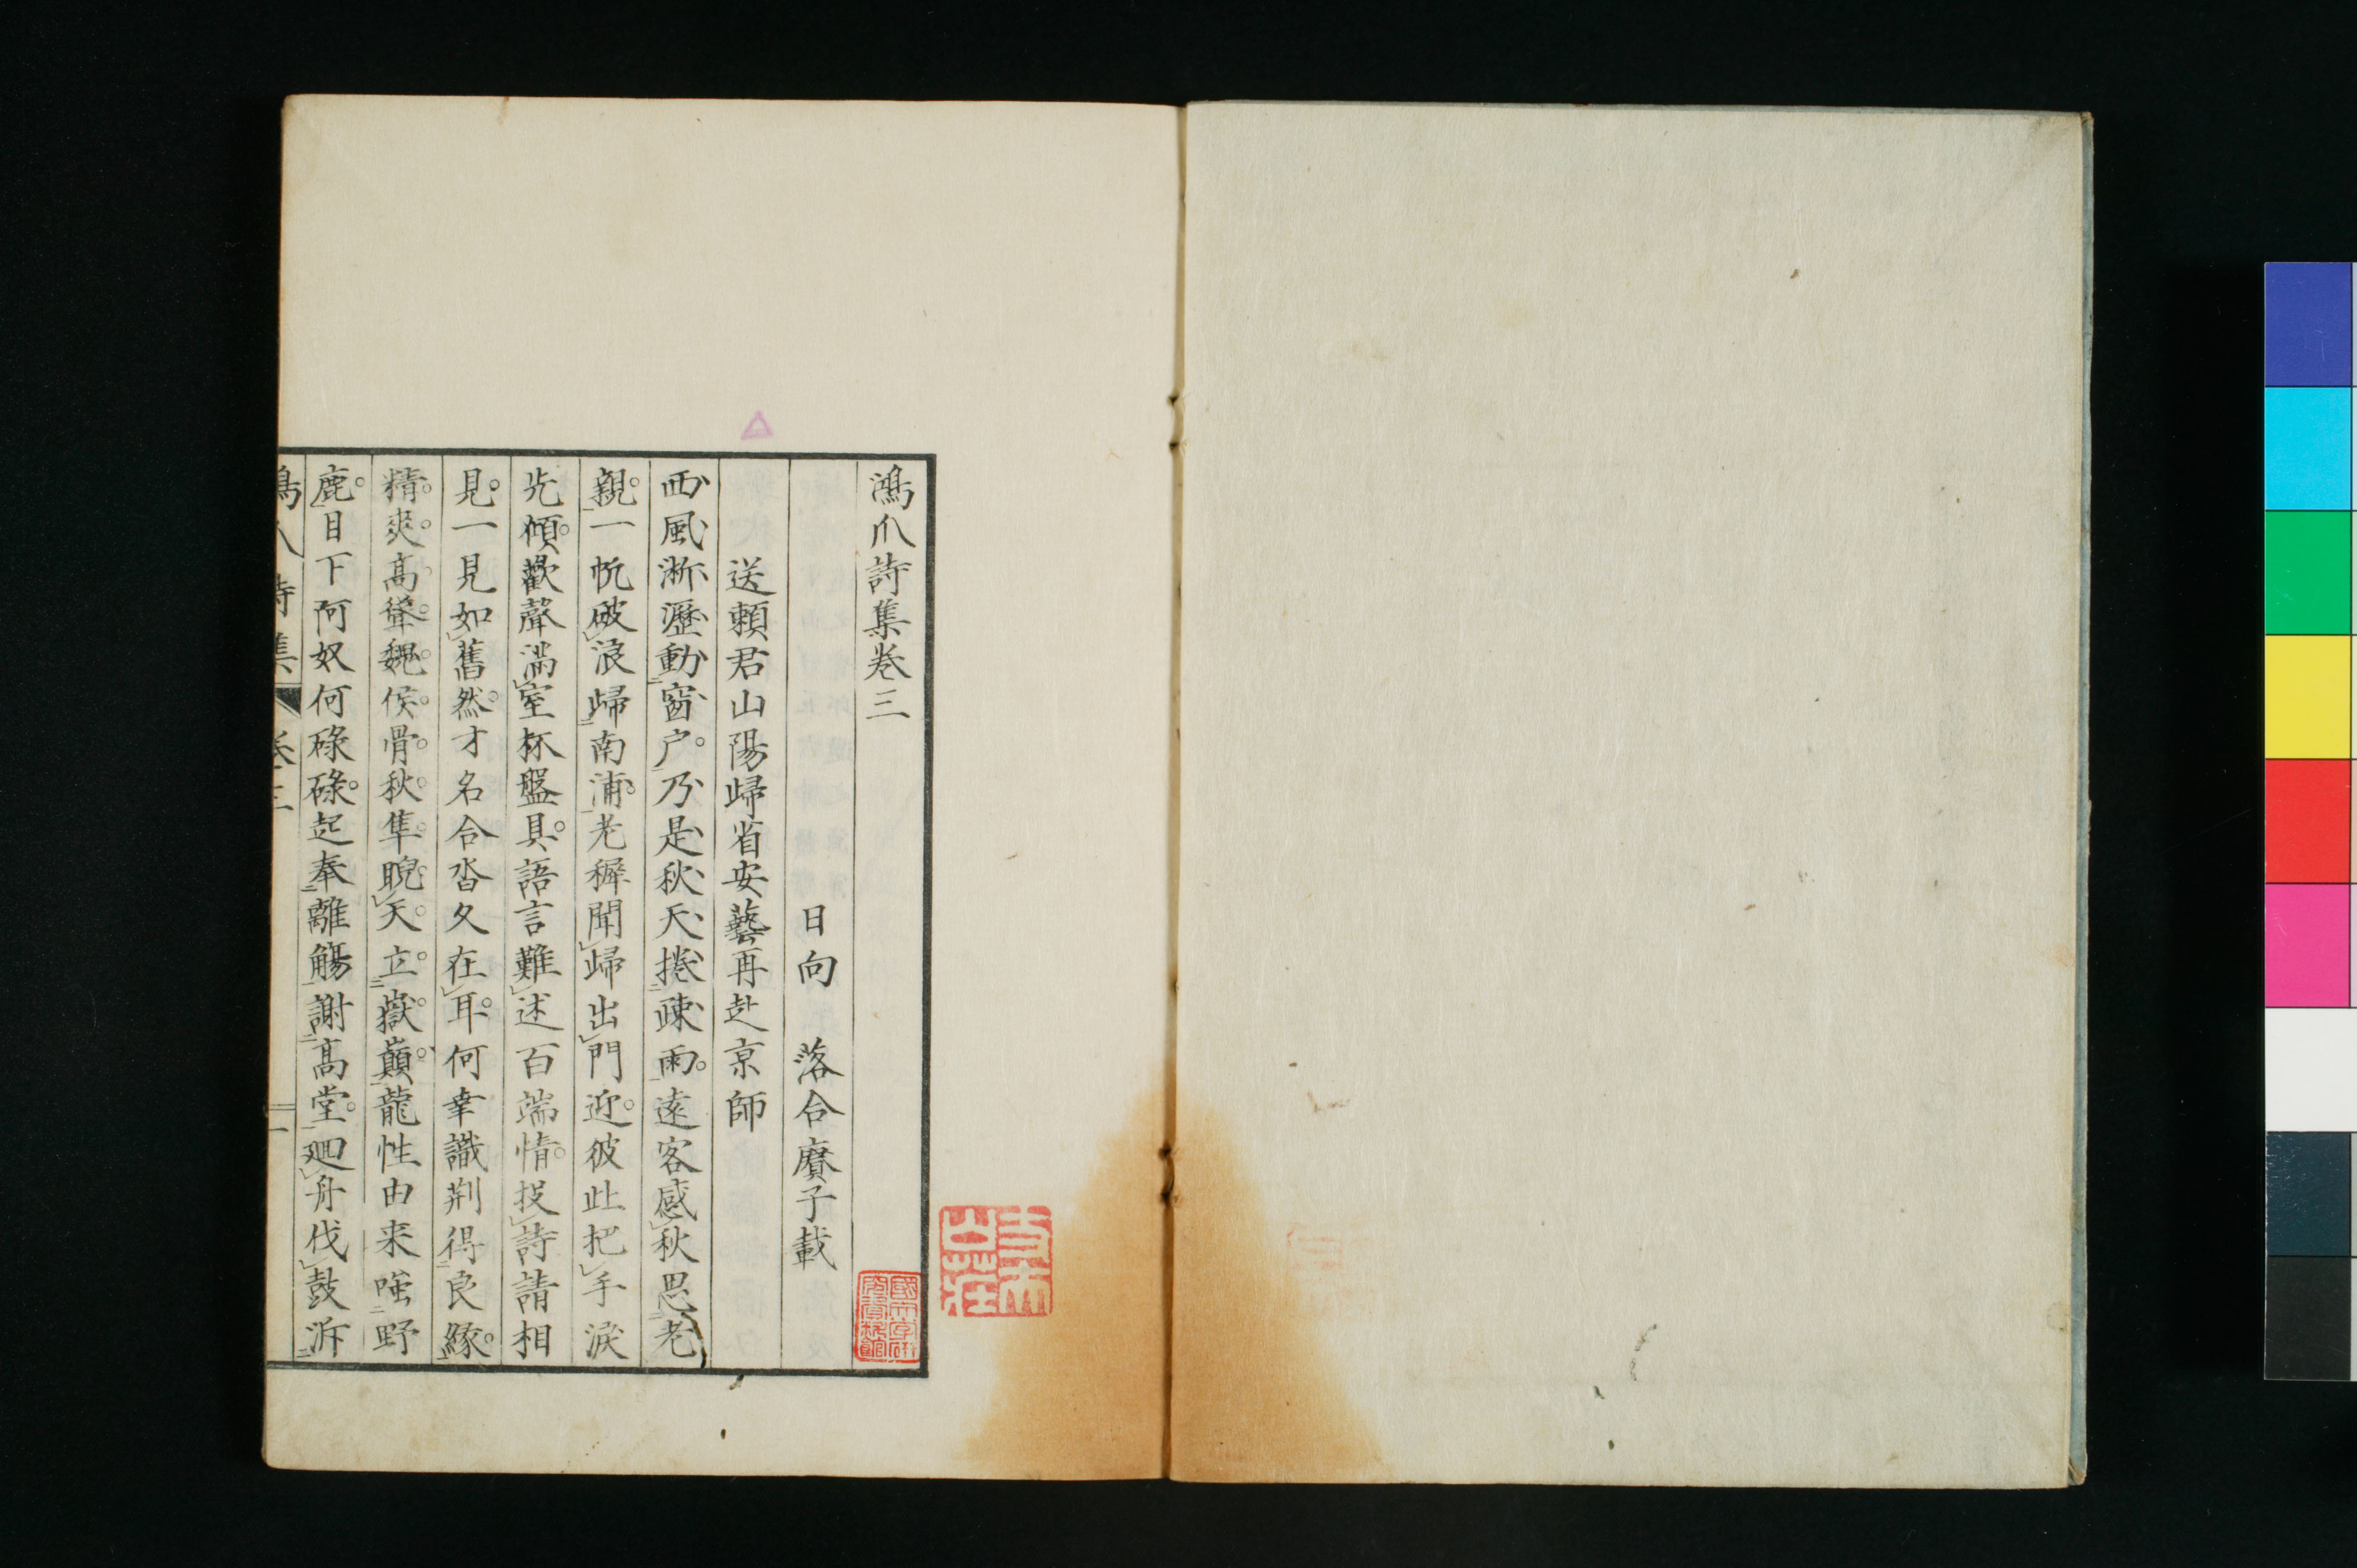 鴻爪詩集卷三
日向 落合賡子載
送賴君山陽歸省安藝再赴京師
西風淅瀝動窗户乃是秋天捲疎雨遠客感秋思老
親一帆破浪歸南浦老穉聞歸出門迎彼此把手淚
先傾歡聲滿室杯盤具語言難述百端情投詩請相
見一見如舊然才名合沓久在耳何幸識荆得良緣
精爽高聳魏侯骨秋隼睨天立嶽巔龍性由来嗤野
鹿目下阿奴何碌碌起奉離觴謝高堂廻舟伐鼓泝